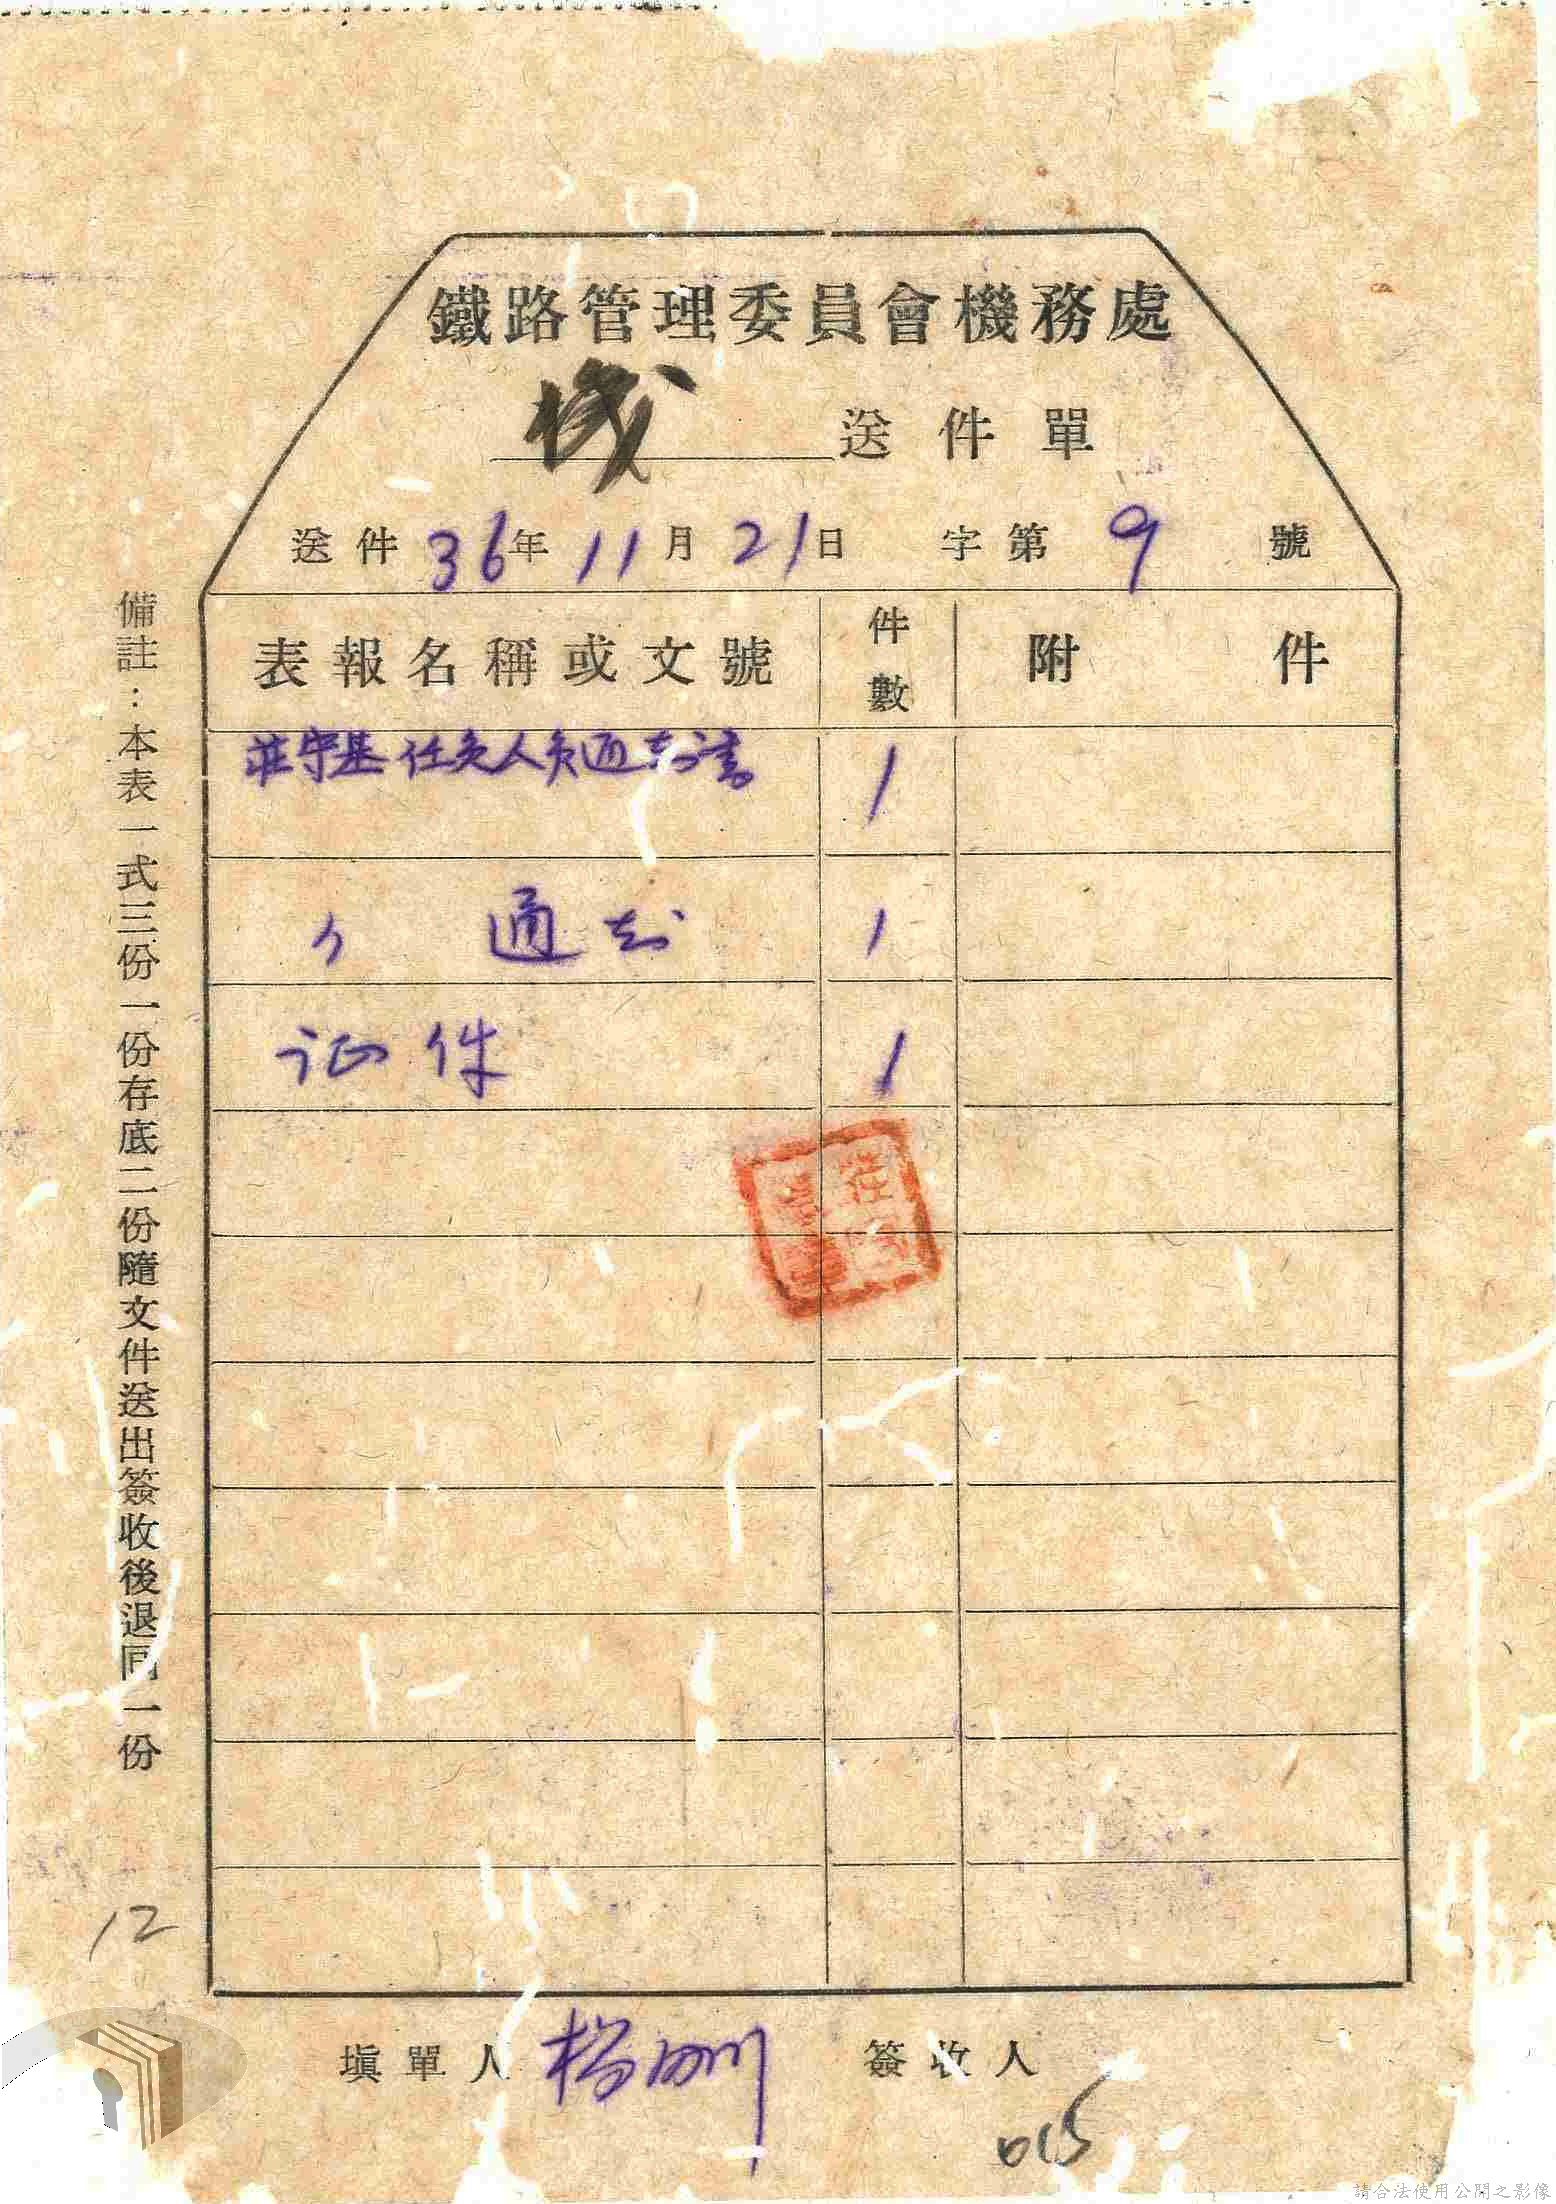 鐵路管理委員會機務處
送件單
送件36年11月21日 字第9號
表報名稱或文號 件數 附件
莊守基任免人員通知書 1
〃 通知 1
证件 1
備註：本表一式三份一份存底二份隨文件送出簽收後退回一份
12
填單人 楊 簽收人
015
請合法使用公開之影像